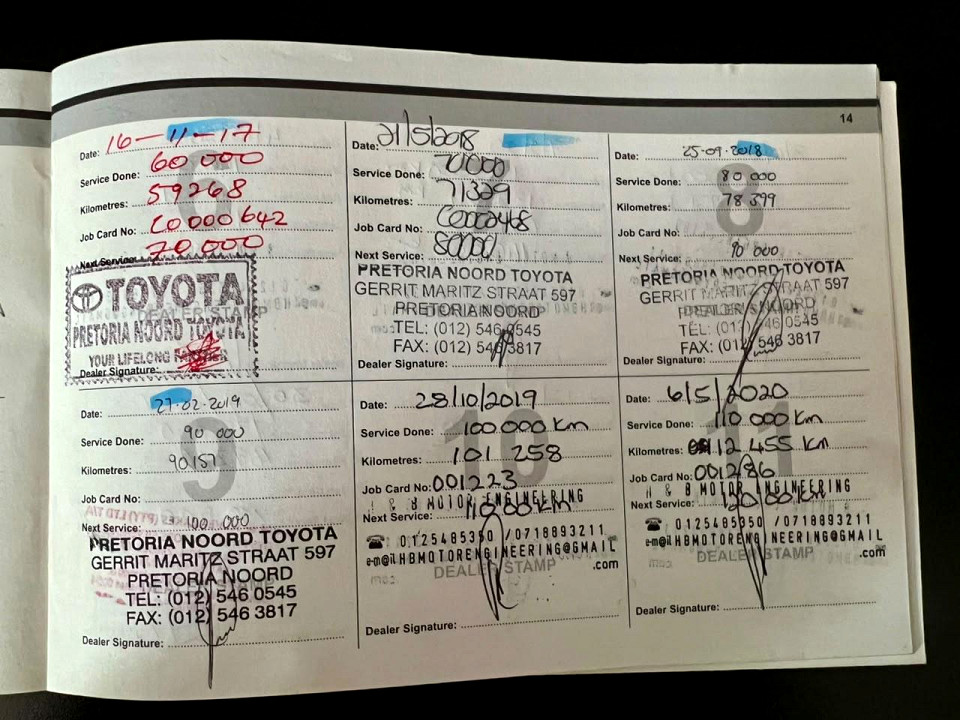 14
Date: 16-11-17
Service Done: 60 000
Kilometres: 59268
Job Card No: C0000642
Next Service: 70.000
TOYOTA
DEALER STAMP
PRETORIA NOORD TOYOTA
YOUR LIFELONG
Dealer Signature:
Date: 21/5/2018
Service Done: 70000
Kilometres: 71329
Job Card No: C0002468
Next Service: 80000
PRETORIA NOORD TOYOTA
GERRIT MARITZ STRAAT 597
PRETORIA NOORD
TEL: (012) 546 0545
FAX: (012) 546 3817
Dealer Signature:
8
Date: 25-09-2018
Service Done: 80 000
Kilometres: 78 399
Job Card No:
Next Service: 90 000
PRETORIA NOORD TOYOTA
GERRIT MARITZ STRAAT 597
PRETORIA NOORD
TEL: (012) 546 0545
FAX: (012) 546 3817
Dealer Signature:
9
Date: 27-02-2019
Service Done: 90 000
Kilometres: 90157
Job Card No:
Next Service: 100 000
PRETORIA NOORD TOYOTA
GERRIT MARITZ STRAAT 597
PRETORIA NOORD
TEL: (012) 546 0545
FAX: (012) 546 3817
Dealer Signature:
10
Date: 28/10/2019
Service Done: 100.000 km
Kilometres: 101 258
Job Card No: 001223
& B MOTOR ENGINEERING
Next Service:
0125485350 / 0718893211
e-m@il HBMOTORENGINEERING@GMAIL
.com
DEALER STAMP
Dealer Signature:
11
Date: 6/5/2020
Service Done: 110 000 km
Kilometres: 112 455 km
Job Card No: 001286
H & B MOTOR ENGINEERING
Next Service:
0125485350 / 0718893211
e-m@il HBMOTORENGINEERING@GMAIL
.com
DEALER STAMP
Dealer Signature: